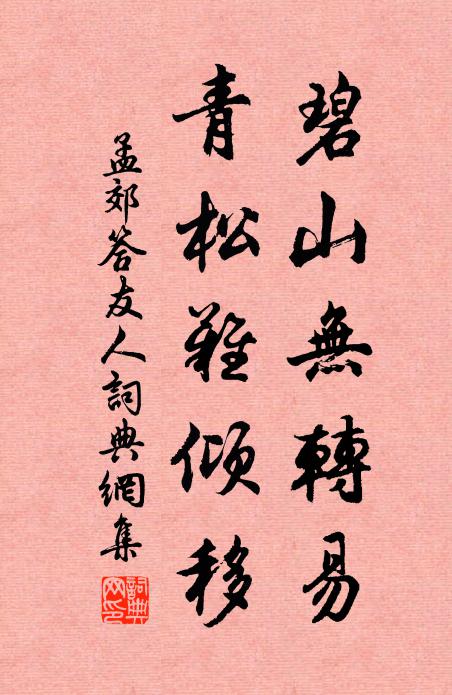 碧山無轉易
青松難傾移
孟郊答友人詞典網集
詞典網印